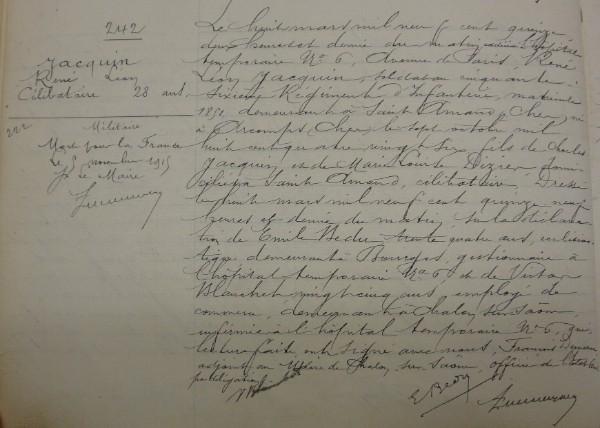 242
Jacquin
René Léon
Célibataire 28 ans
222
Militaire
Mort pour la France
Le 5 novembre 1915
Le Maire
Le huit mars mil neuf cent quinze
deux heures et demie du matin
temporaire N° 6, Avenue de Paris, René
Léon Jacquin, soldat au cinquante-
sixième Régiment d'Infanterie, matricule
demeurant à Saint Amand, Cher, né
à Orcomps, Cher, le sept octobre mil
huit cent quatre vingt six, fils de Charles
Jacquin, et de Marie Louise Dizier, domi-
ciliés à Saint Amand, célibataire. Dressé
le huit mars mil neuf cent quinze neuf
heures et demie du matin, sur la déclara-
tion de Emile Bedu, trente quatre ans,
demeurant à Bourges, gestionnaire à
l'hôpital temporaire N° 6, et de Victor
Blanchet vingt cinq ans, employé de
commerce, demeurant à Chalon sur Saône,
infirmier à l'hôpital temporaire N° 6, qui,
lecture faite ont signé avec nous, Francois
adjoint au Maire de Chalon sur Saône, officier de l'état civil
par délégation.
E Bedu